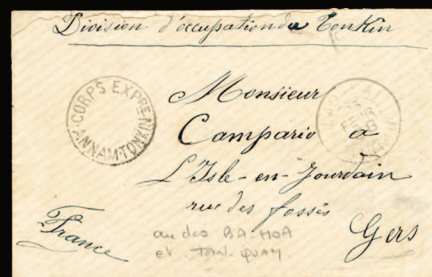 Division d'occupation du Tonkin
CORPS EXPRE
ANNAM-TONKIN
Monsieur
Campario a
L'Isle-en-Jourdain
rue des fossés
Gers
France
au des BA-HOA
et